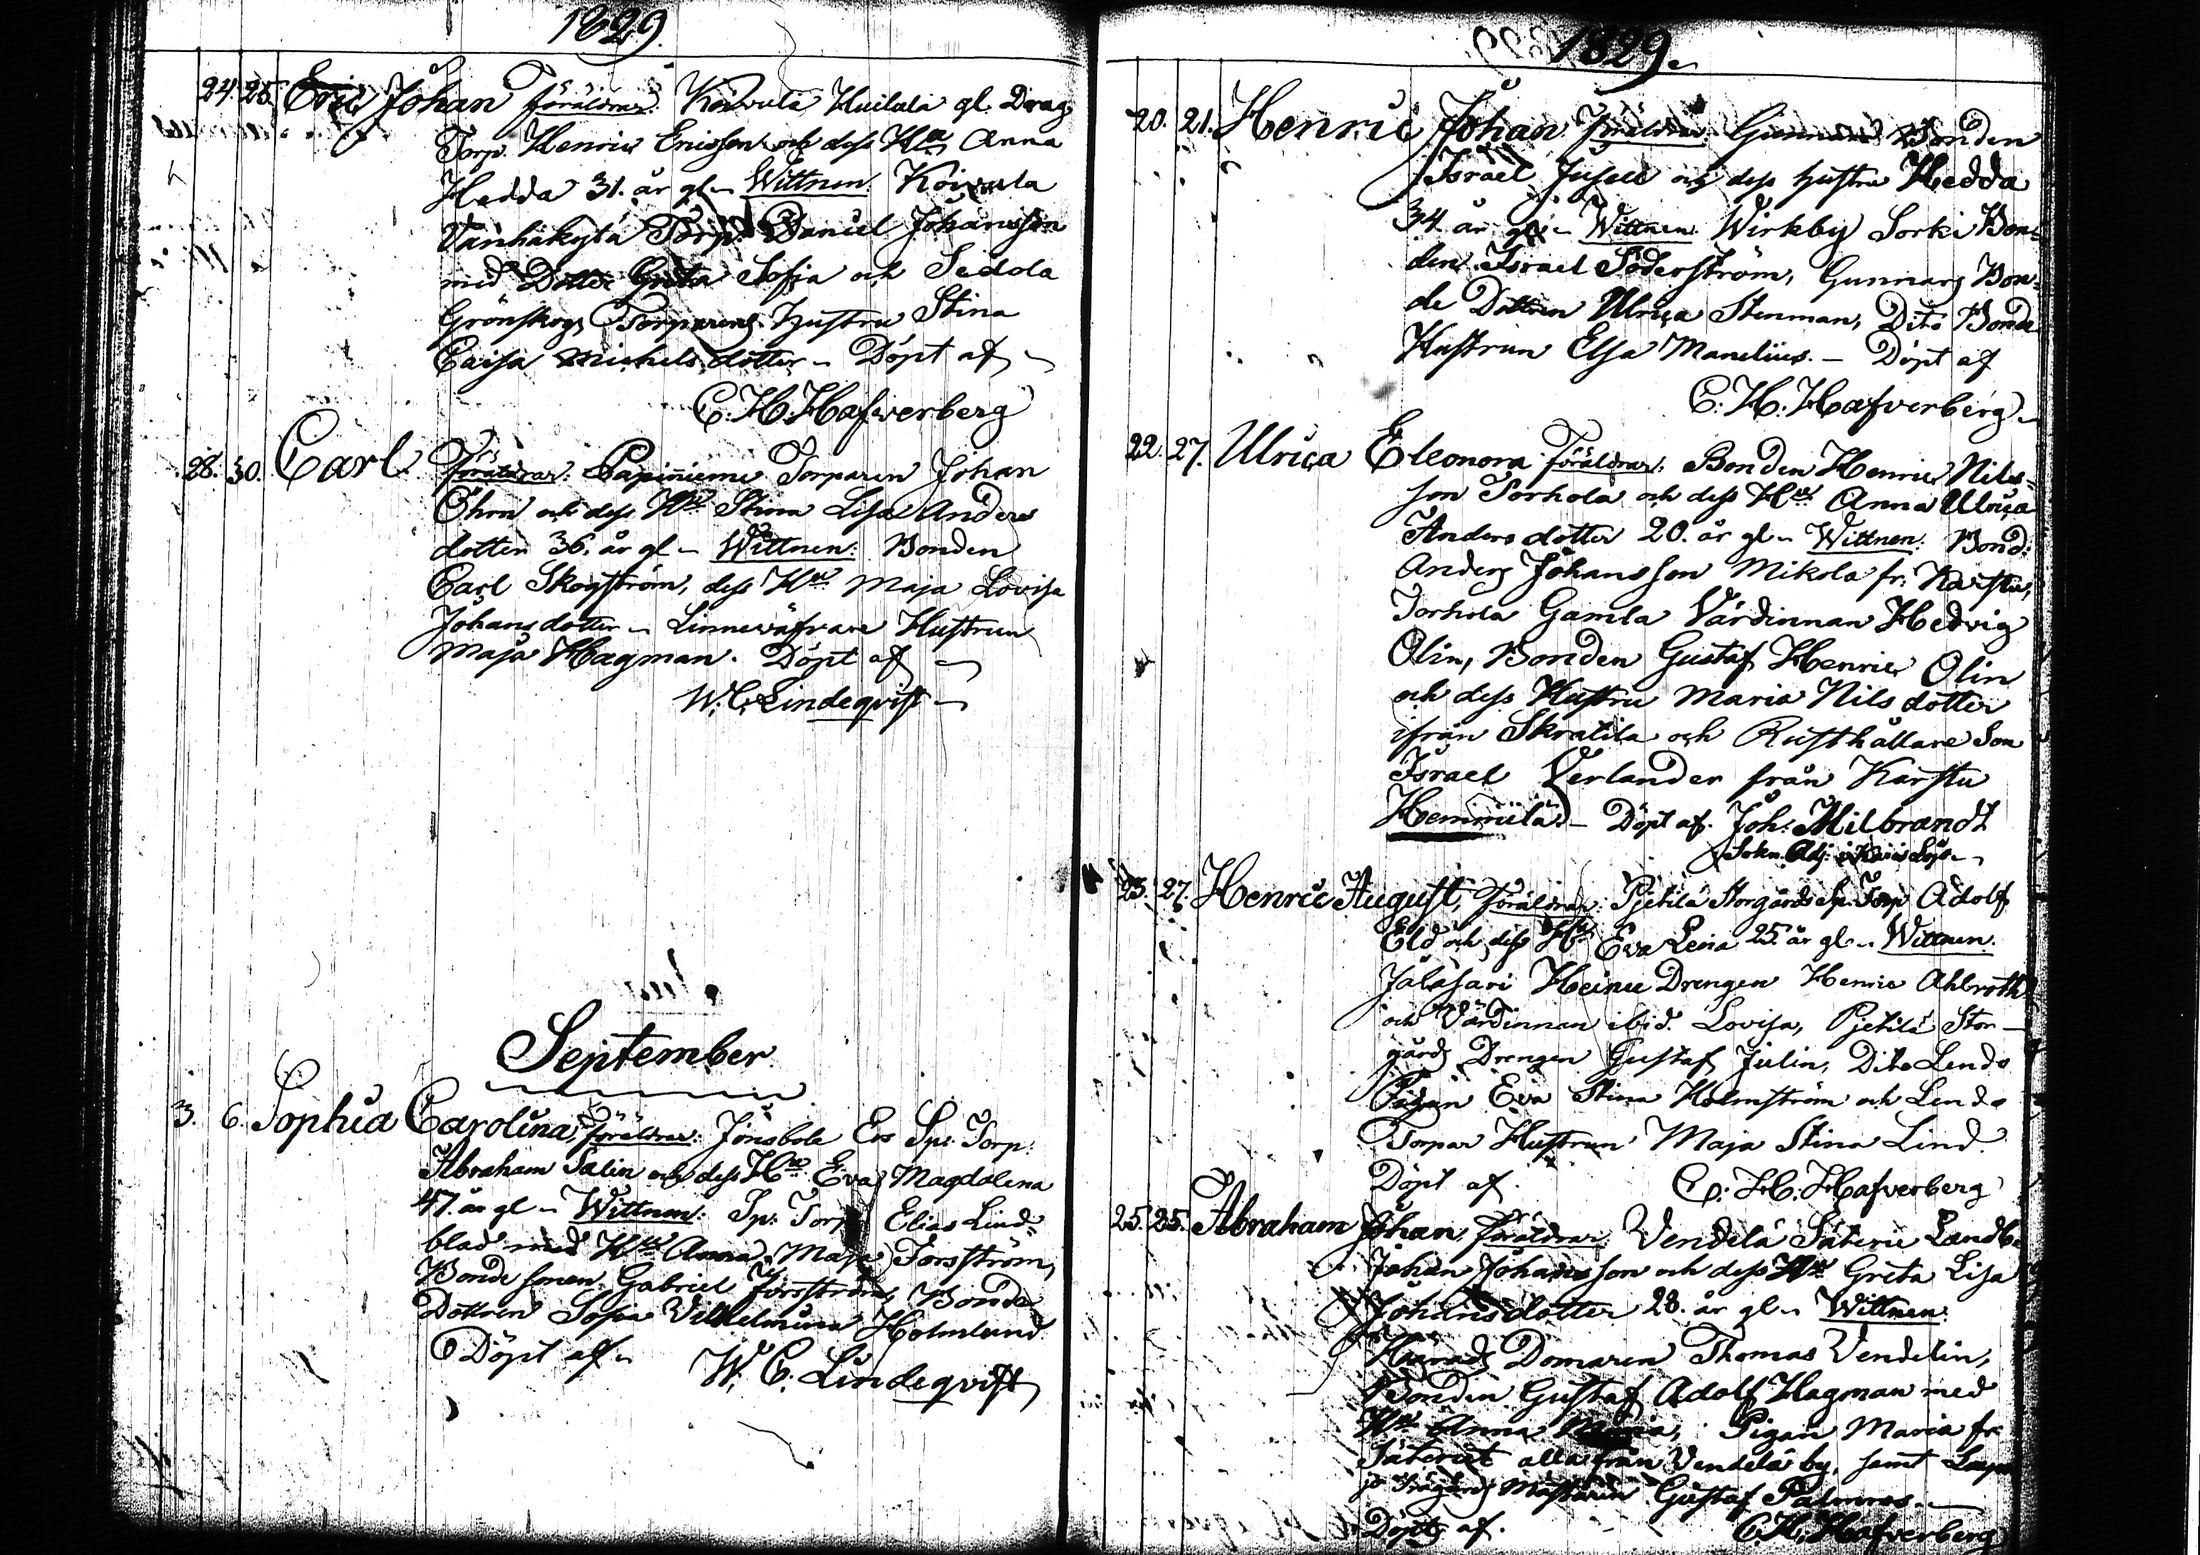 1829.
24. 25. Eric Johan Föräldrar: Koivula Huilula gl. Drag
Torp. Henric Ericsson och dess Hu Anna
Hedda 31. år gl. Wittnen: Koivula
Vanhakylä Torp. Daniel Johansson
med Dotter Greta Sofia och Sedola
Grönskogs Torparens Hustru Stina
Caisa Michels dotter – Döpt af
C. H. Hafverberg
28. 30. Carl Föräldrar: Papiniemi Torparen Johan
Öhrn och dess Hu Stina Lisa Anders
dotter 36. år gl – Wittnen: Bonden
Carl Skogström, dess Hu Maja Lovisa
Johansdotter – Linnewäfvare Hustrun
Maja Hagman. Döpt af –
W. C. Lindeqvist –
September
3. 6. Sophia Carolina, Föräldrar: Jönsböle Ers Sp. Torp:
Abraham Salin och dess Hu Eva Magdalena
47. år gl – Wittnen: Sp: Torp Elias Lind=
blad med Hu Anna Maja Forsström,
Bonde sonen Gabriel Forsström, Bonde
Dottren Sofia Vilhelmina Holmlund
Döpt af – W. C. Lindeqvist
1829.
20. 21. Henric Johan Föräldrar: Gunnars Bonden
Israel Juselé och dess hustru Hedda
34 år gl – Wittnen: Wirkby Sorki Bon=
den Israel Söderström, Gunnars Bon=
de Dottren Ulrica Stenman, Dito Bonde
Hustrun Elsa Manelius. – Döpt af
C. H. Hafverberg –
22. 27. Ulrica Eleonora Föräldrar: Bonden Henric Nils=
son Torhola och dess Hu Anna Ulrica
Anders dotter 20. år gl – Wittnen: Bond:
Anders Johansson Mikola fr: Karstu,
Torhola Gamla Värdinnan Hedvig
Olin, Bonden Gustaf Henric Olin
och dess Hustru Maria Nils dotter
ifrån Skratila och Rusthållare Son
Israel Verlander från Karstu
Hemmilä – Döpt af. Joh: Milbrandt
Sokn. Adj. i Karislojo –
23. 27. Henric August, Föräldrar: Pjetilä Storgårds Sp. Torp Adolf
Eld och dess Hu Eva Lena 25. år gl – Wittnen:
Jalasari Heinu Drengen Henric Ahlroth
och Värdinnan ibid. Lovisa, Pjetilä Stor –
gårds Drengen Gustaf Julin, Dito Lends
Pigan Eva Stina Holmström och Lends
Torpar Hustrun Maja Stina Lind.
Döpt af. C. H. Hafverberg
25. 25. Abraham Johan, Föräldrar: Vendelä Säterie Landb.
Johan Johansson och dess Hu Greta Lisa
Johansdotter 28. år gl – Wittnen:
Härads Domaren Thomas Vendelin,
Bonden Gustaf Adolf Hagman med
Hu Anna Maria, Pigan Maria fr.
Säteriet alla från Vendelä by, samt
Trägårds Mästaren Gustaf Palmros –
Döpt af. C. H. Hafverberg